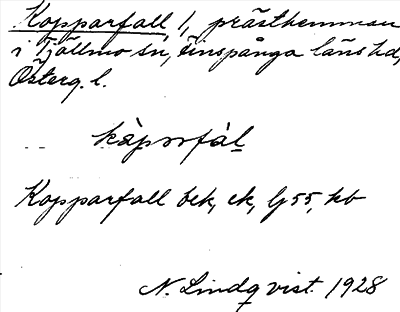 Kopparfall 1, prästhemman
i Tjällmo sn, Finspånga läns hd,
Österg. l.
kàpərfál
Kopparfall bek, ek, Lj 55, kb
N. Lindqvist 1928